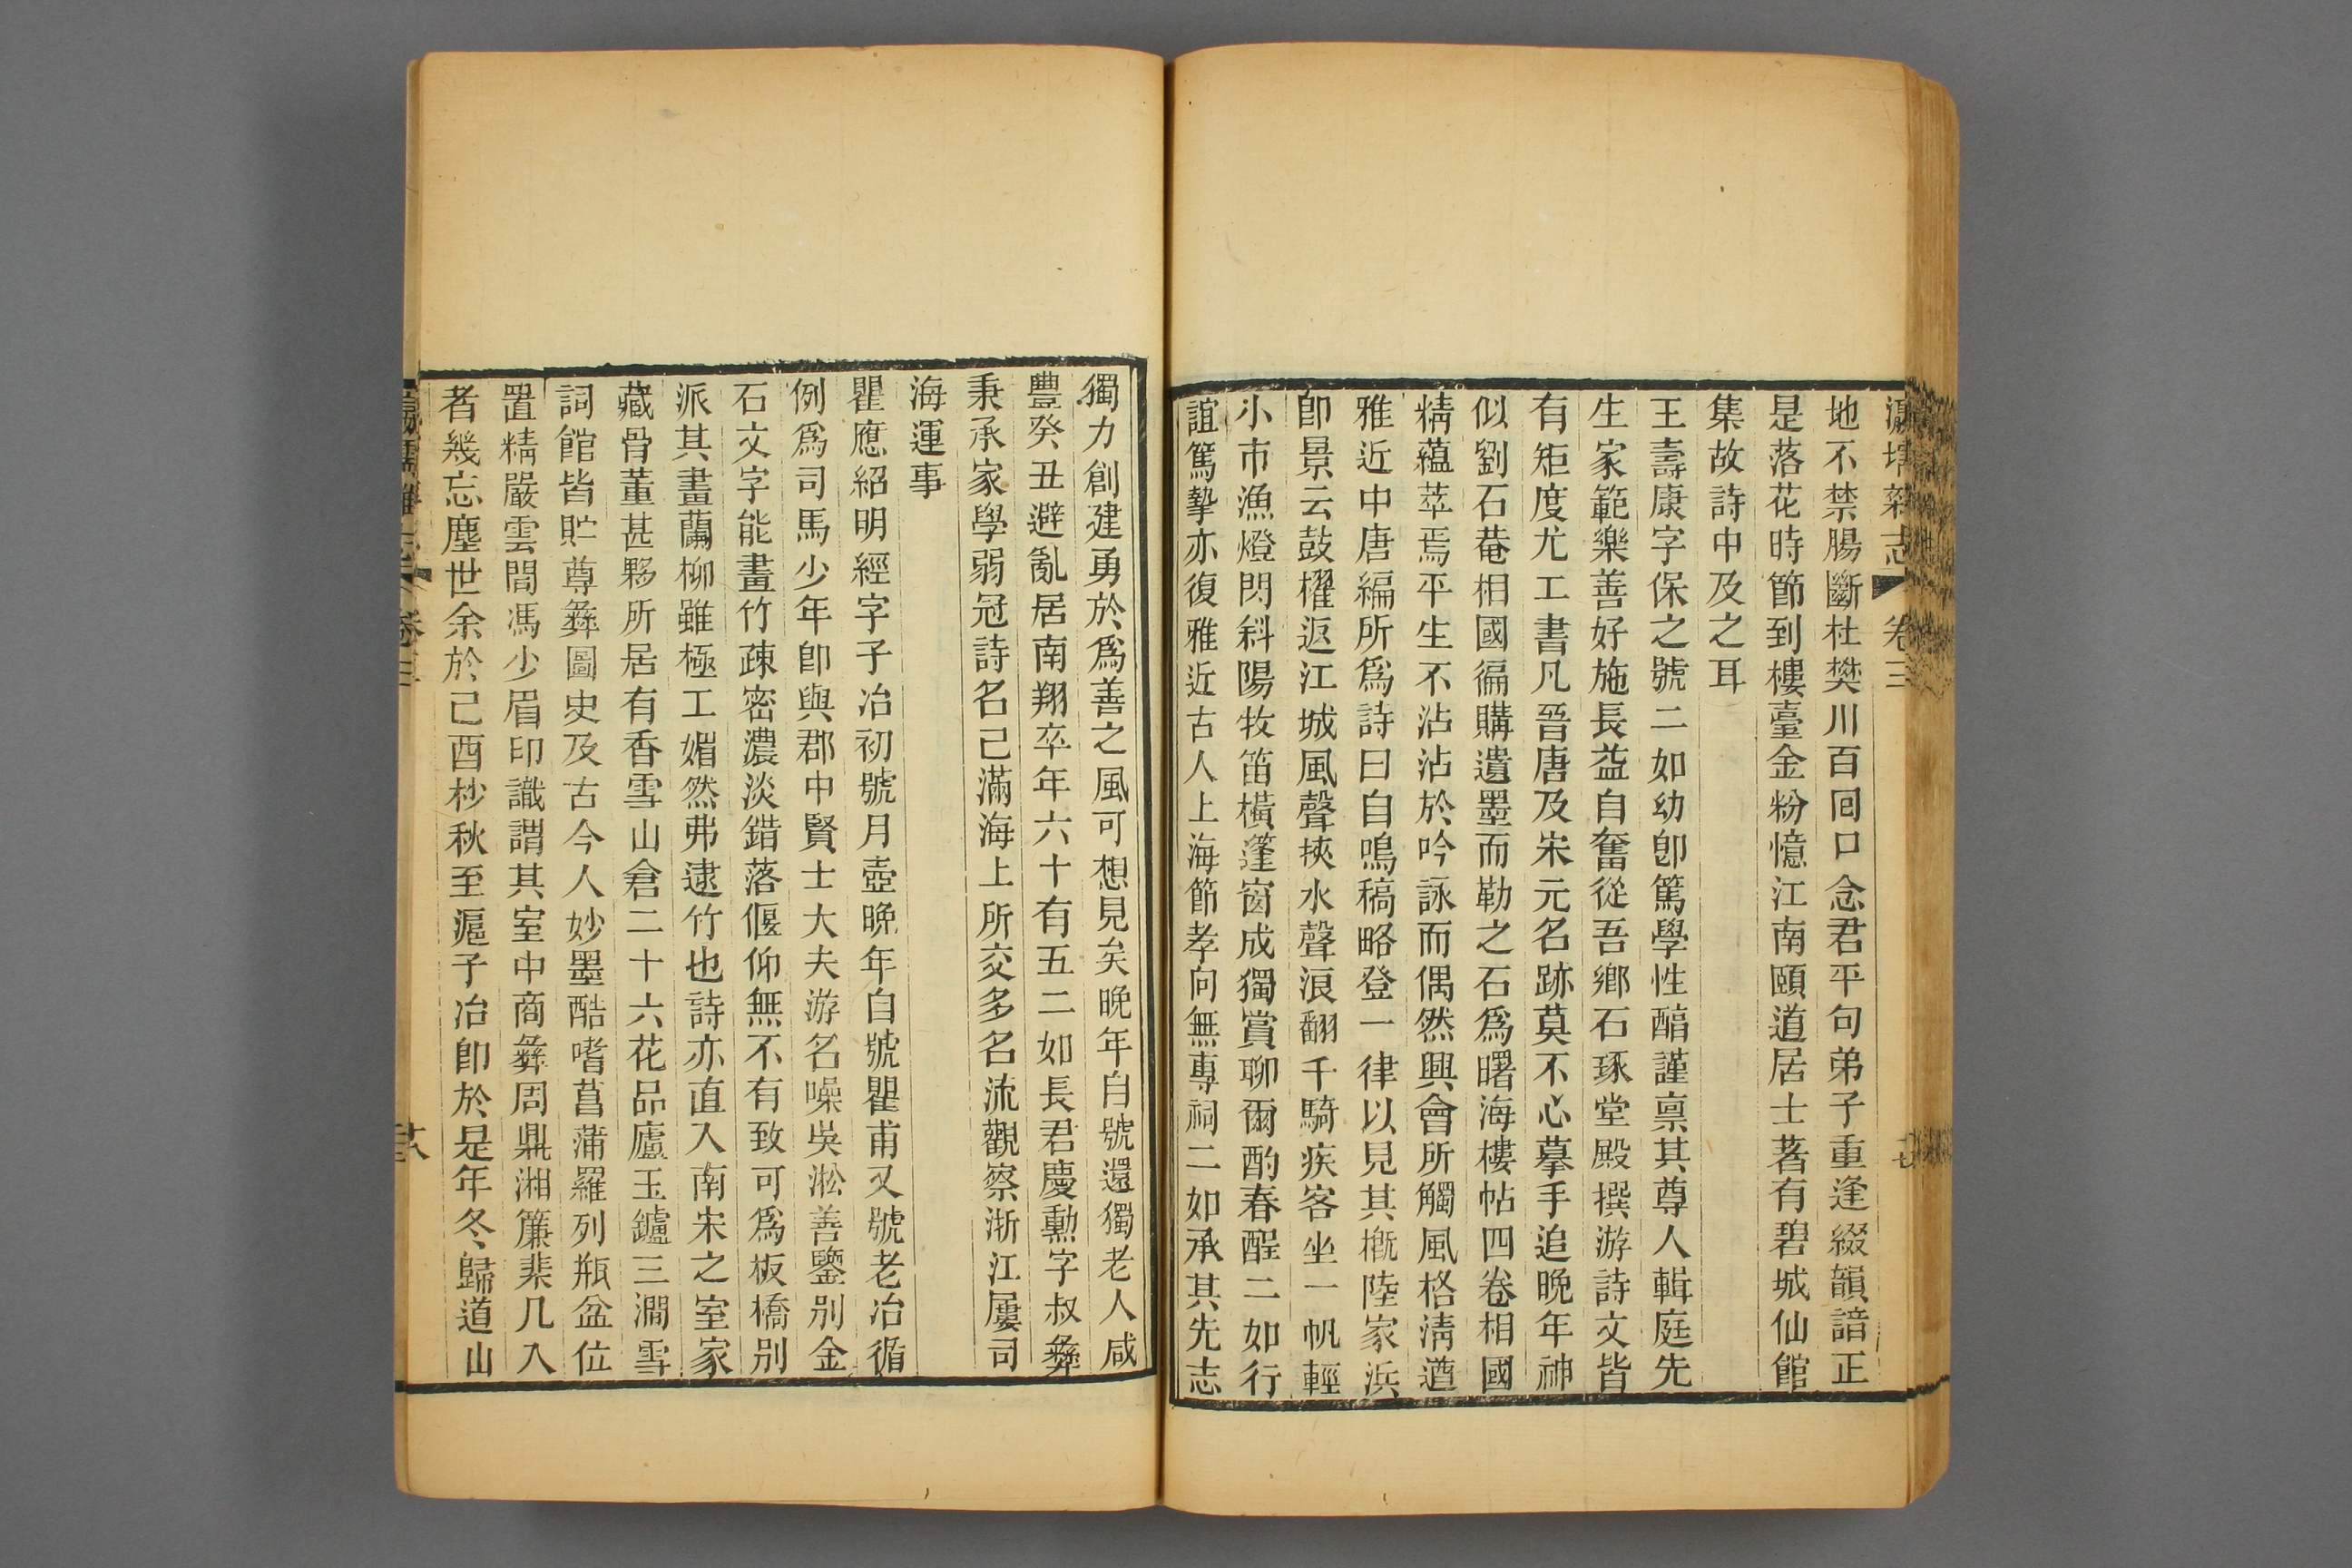 瀛壖雜志 卷三 十七
地不禁腸斷杜樊川百囘口念君平句弟子重逢綴韻諳正
是落花時節到樓臺金粉憶江南頤道居士著有碧城仙館
集故詩中及之耳
王壽康字保之號二如幼卽篤學性醕謹禀其尊人輯庭先
生家範樂善好施長益自奮從吾鄉石琢堂殿撰游詩文皆
有矩度尤工書凡晉唐及宋元名跡莫不心摹手追晚年神
似劉石菴相國徧購遺墨而勒之石爲曙海樓帖四卷相國
精蘊萃焉平生不沾沾於吟詠而偶然興會所觸風格淸遒
雅近中唐編所爲詩曰自鳴稿略登一律以見其槪陸家浜
卽景云鼓櫂返江城風聲挾水聲浪翻千騎疾客坐一帆輕
小市漁燈閃斜陽牧笛橫蓬窗成獨賞聊爾酌春酲二如行
誼篤摯亦復雅近古人上海節孝向無專祠二如承其先志
獨力創建勇於爲善之風可想見矣晚年自號還獨老人咸
豐癸丑避亂居南翔卒年六十有五二如長君慶勳字叔彝
秉承家學弱冠詩名已滿海上所交多名流觀察浙江屢司
海運事
瞿應紹明經字子冶初號月壺晚年自號瞿甫又號老冶循
例爲司馬少年卽與郡中賢士大夫游名噪吳淞善鑒别金
石文字能畫竹疎密濃淡錯落偃仰無不有致可爲板橋别
派其畫蘭柳雖極工媚然弗逮竹也詩亦直入南宋之室家
藏骨董甚夥所居有香雪山倉二十六花品廬玉鑪三澗雪
詞館皆貯尊彝圖史及古今人妙墨酷嗜菖蒲羅列瓶盆位
置精嚴雲間馮少眉印識謂其室中商彝周鼎湘簾棐几入
者幾忘塵世余於己酉杪秋至滬子冶卽於是年冬歸道山